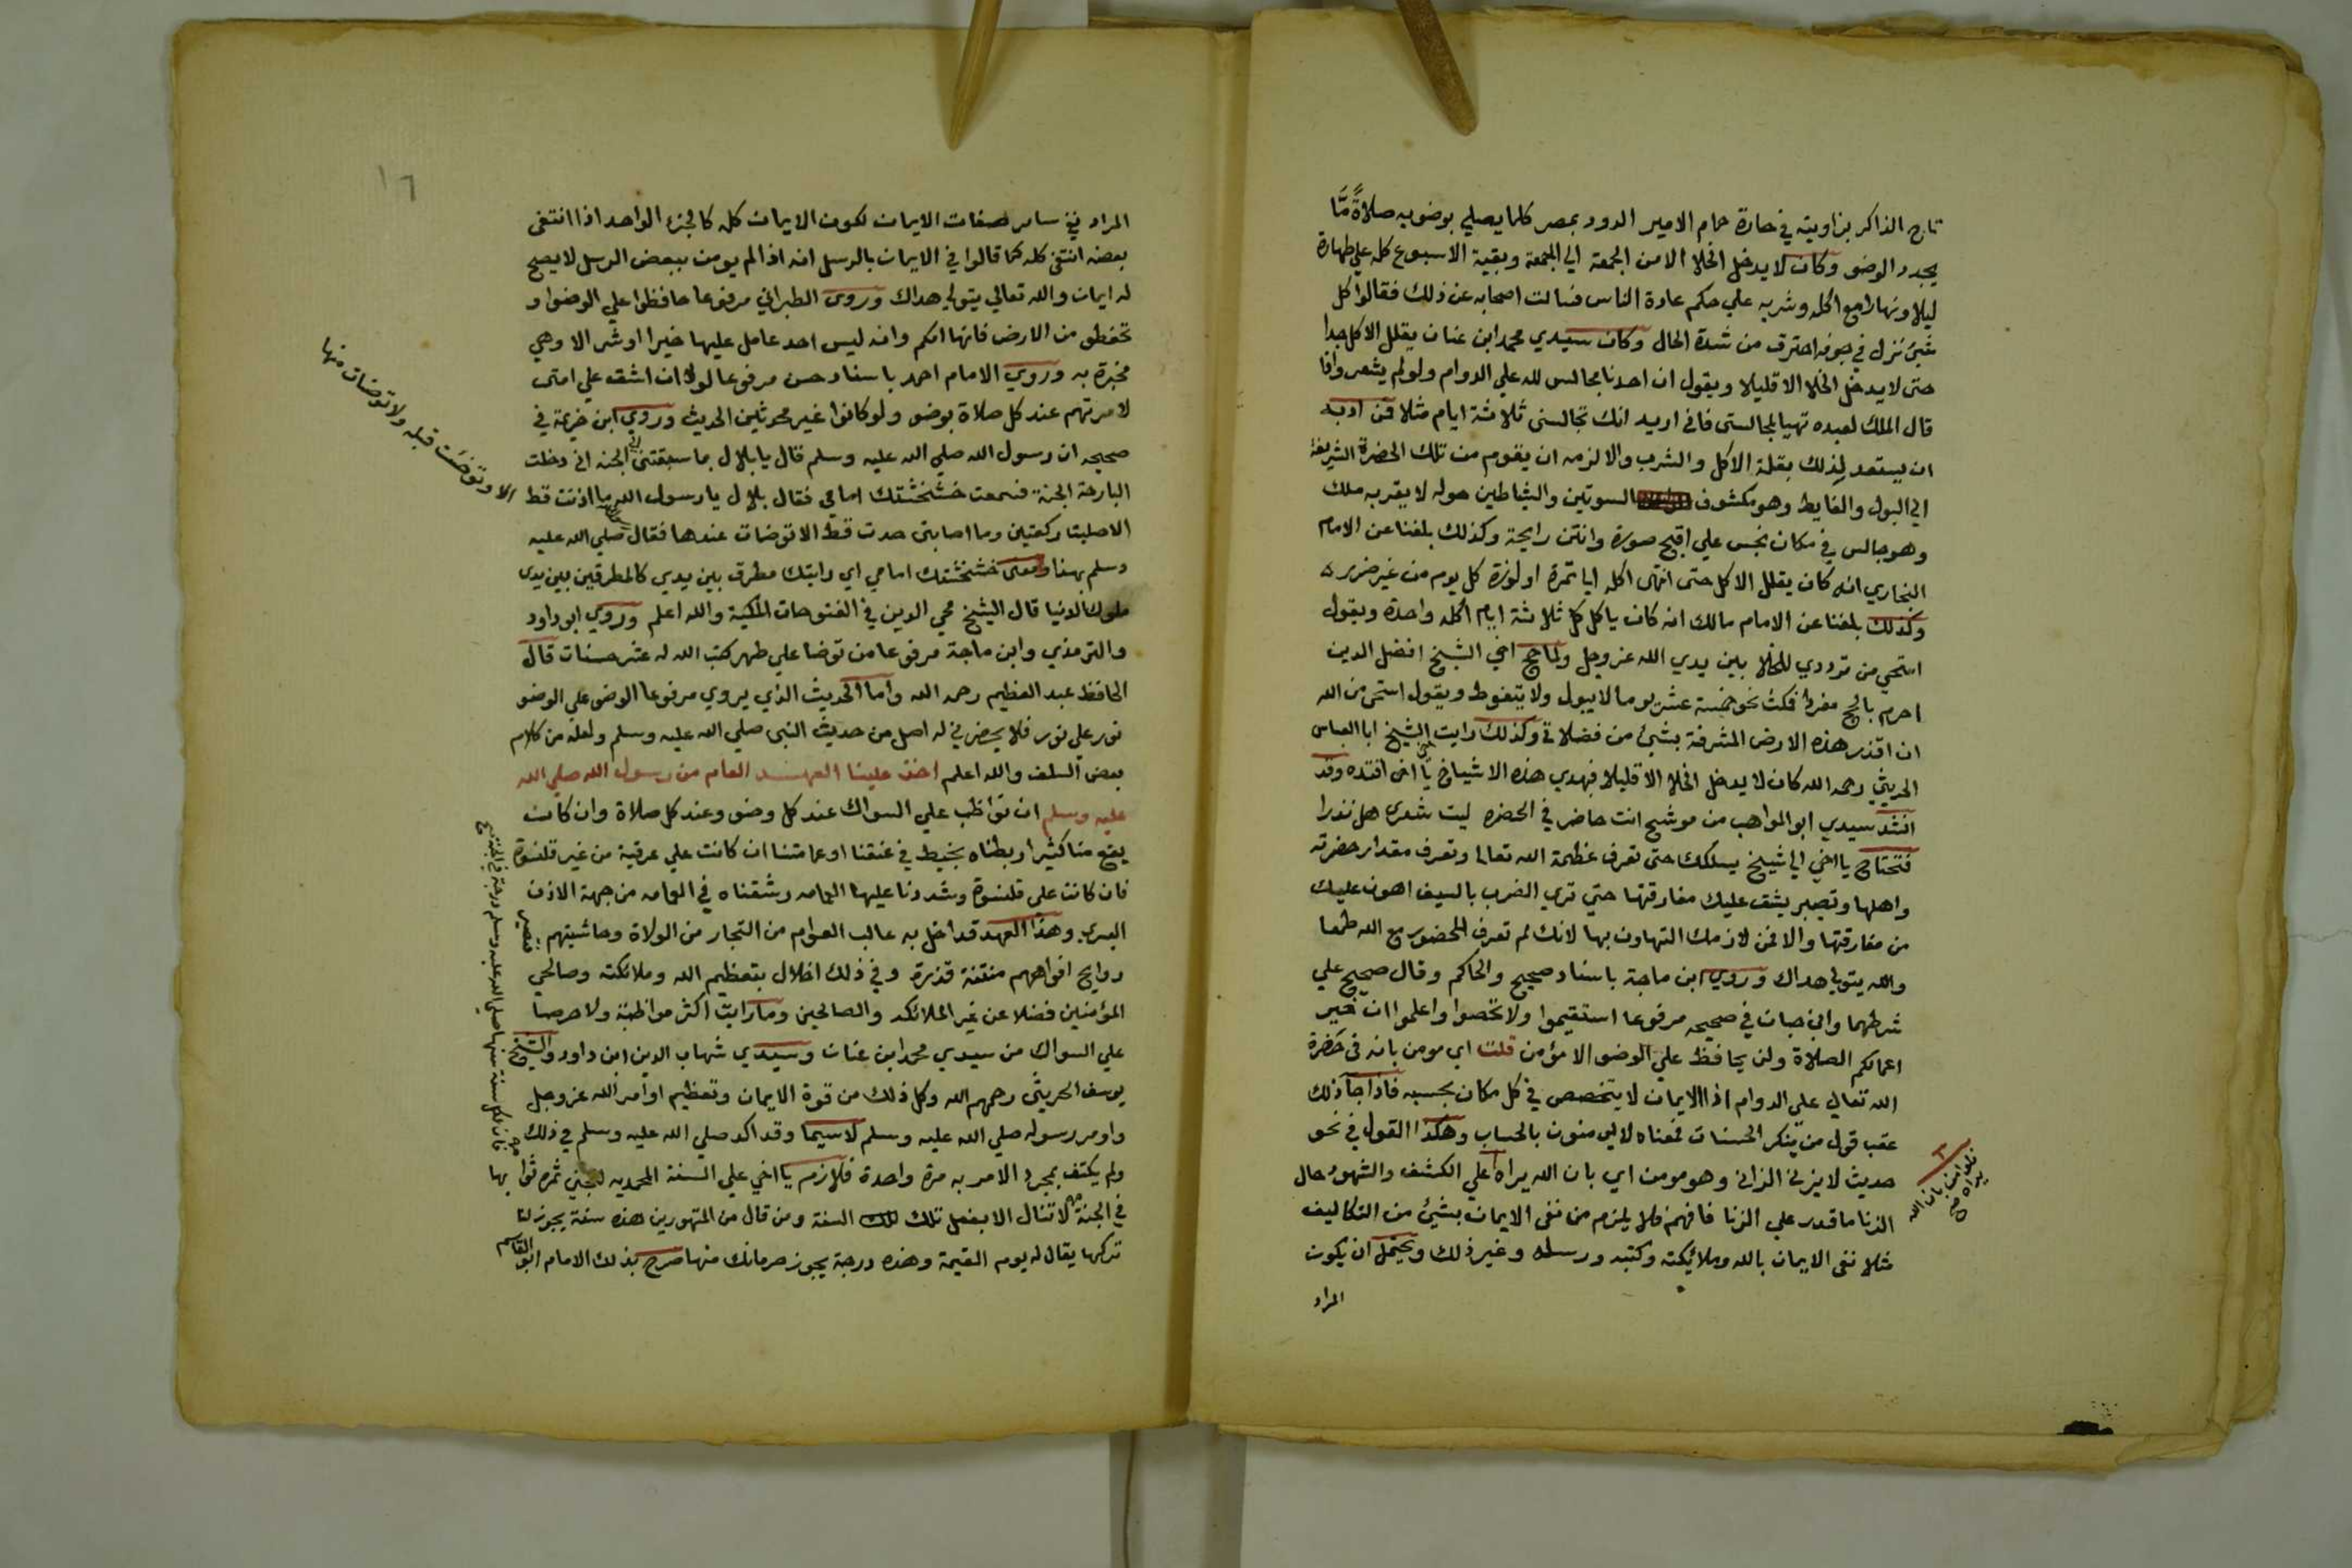 تاج الذاكر بزاويته في حارة حمام الامير الدود بمصر كلما يصلي بوضوءه صلاةً مّا
يجدد الوضو وكان لا يدخل الخلا الا من الجمعة الي الجمعة وبقية الاسبوع كله علي طهارة
ليلا ونهارا مع اكله وشربه علي حكم عادة الناس فسالت اصحابه عن ذلك فقالوا كل
شيئ نزل في جوفه احترق من شدة الحال وكان سيدي محمد ابن عنان يقلل الاكل جدا
حتى لا يدخل الخلا الا قليلا ويقول ان احدنا مجالس لله علي الدوام ولو لم يشعر واذا
قال الملك لعبده تهيا لمجالستى فانى اريد انك تجالسنى ثلاثة ايام مثلا فمن ادبه
ان يستعد لذلك بقلة الاكل والشرب والا لزمه ان يقوم من تلك الحضرة الشريفة
الي البول والغايط وهو مكشوف السوتين والشياطين حوله لا يقربه ملك
وهو جالس في مكان نجس علي اقبح صورة وانتن رايحة وكذلك بلغنا عن الامام
البخاري انه كان يقلل الاكل حتى انتهى اكله الي تمرة او لوزة كل يوم من غير ضرر
وكذلك بلغنا عن الامام مالك انه كان ياكل كل ثلاثة ايام اكله واحدة ويقول
استحي من ترددي للخلا بين يدي الله عز وجل ولما حج اخي الشيخ افضل الدين
احرم بالحج مفردا فمكث نحو خمسة عشر يوما لا يبول ولا يتغوط ويقول استحى من الله
ان اقذر هذه الارض المشرفة بشيئ من فضلاتى وكذلك رايت الشيخ ابا العباس
الحريثي رحمه الله كان لا يدخل الخلا الا قليلا فبهدي هذه الاشياخ يا اخى اقتده وقد
انشد سيدي ابو المواهب من موشح انت حاضر في الحضره ليت شعرى هل تدرا
فتحتاج يا اخي الي شيخ يسلكك حتى تعرف عظمة الله تعالى وتعرف مقدار حضرته
واهلها وتصير يشق عليك مفارقتها حتي تري الضرب بالسيف اهون عليك
من مفارقتها والا فمن لازمك التهاون بها لانك لم تعرف للحضور مع الله طعما
والله يتولي هداك وروي ابن ماجة باسناد صحيح والحاكم وقال صحيح علي
شرطهما وابن حبان في صحيحه مرفوعا استقيموا ولا تحصوا واعلموا ان خير
اعمالكم الصلاة ولن يحافظ علي الوضو الا مؤمن قلت اي مومن بانه في حضرة
الله تعالي علي الدوام اذا الايمان لا يتخصص في كل مكان بحسبه فاذا جا ذلك
عقب قول من ينكر الحسنات فمعناه لا يومنون بالحساب وهكذا القول في نحو
حديث لا يزنى الزانى وهو مومن اي بان الله يراه علي الكشف والشهود حال
الزنا ما قدر علي الزنا فافهم فلا يلزم من نفى الايمان بشيئ من التكاليف
مثلا نفى الايمان بالله وملائكته وكتبه ورسله وغير ذلك ويحتمل ان يكون
المراد
فلو امن بان الله
يراه صح
١٦
المراد نفى ساير صفات الايمان لكون الايمان كله كالجزء الواحد اذا انتفى
بعضه انتفى كله كما قالوا في الايمان بالرسل انه اذا لم يومن ببعض الرسل لا يصح
له ايمان والله تعالي يتولي هداك وروى الطبراني مرفوعا حافظوا علي الوضوا و
تحفظوا من الارض فانها امكم وانه ليس احد عامل عليها خيرا او شر الا وهي
مخبرة به وروي الامام احمد باسناد حسن مرفوعا لولا ان اشق علي امتى
لامرتهم عند كل صلاة بوضو ولو كانوا غير محدثين الحديث وروي ابن خزيمة في
صحيحه ان رسول الله صلي الله عليه وسلم قال يا بلال بما سبقتنى الي الجنه انى دخلت
البارحة الجنة فسمعت خشخشتك امامي فقال بلال يا رسول الله ما اذنت قط
الا صليت ركعتين وما اصابنى حدث قط الا توضات عندها فقال صلي الله عليه
وسلم بهذا ومعنى خشخشتك امامي اي رايتك مطرق بين يدي كالمطرقين بين يدى
ملوك الدنيا قال الشيخ محي الدين في الفتوحات المكية والله اعلم وروي ابو داود
والترمذي وابن ماجة مرفوعا من توضا علي طهر كتب الله له عشر حسنات قال
الحافظ عبد العظيم رحمه الله واما الحديث الذي يروي مرفوعا الوضو علي الوضو
نور علي نور فلا يحضرني له اصل من حديث النبى صلي الله عليه وسلم ولعله من كلام
بعض السلف والله اعلم اخذ علينا العهـــد العام من رسول الله صلي الله
عليه وسلم ان نواظب علي السواك عند كل وضو وعند كل صلاة وان كانت
يقع منا كثيرا ربطناه بخيط في عنقنا او عمامتنا ان كانت علي عرقية من غير قلنسوة
فان كانت علي قلنسوة وشددنا عليها العمامه رشقناه في العمامه من جهة الاذن
اليسري وهذا العهد قد اخل به غالب العوام من التجار من الولاة وحاشيتهم فتصير
روايح افواههم منتنة قذرة وفي ذلك اخلال بتعظيم الله وملائكته وصالحي
المؤمنين فضلا عن غير الملائكه والصالحين وما رايت اكثر مواظبة ولا حرصا
علي السواك من سيدي محمد ابن عنان وسيدي شهاب الدين ابن داود والشيخ
يوسف الحريثى رحمهم الله وكل ذلك من قوة الايمان وتعظيم اوامر الله عز وجل
واومر رسوله صلي الله عليه وسلم لا سيما وقد اكد صلي الله عليه وسلم في ذلك
ولم يكتف بمجرد الامر به مرة واحدة فلازم يا اخي علي السنة المحمديه لتجنى ثمرة ثوابها
في الجنة لا تنال الا بفعل تلك السنة ومن قال من المتهورين هذه سنة يجوز لنا
تركها يقال له يوم القيمة وهذه درجة يجوز حرمانك منها صرح بذلك الامام ابو القاسم
الا وتوضت قبله ولا توضات منها
فان لكل سنة سنها صلي الله عليه وسلم درجة في الجنة صح